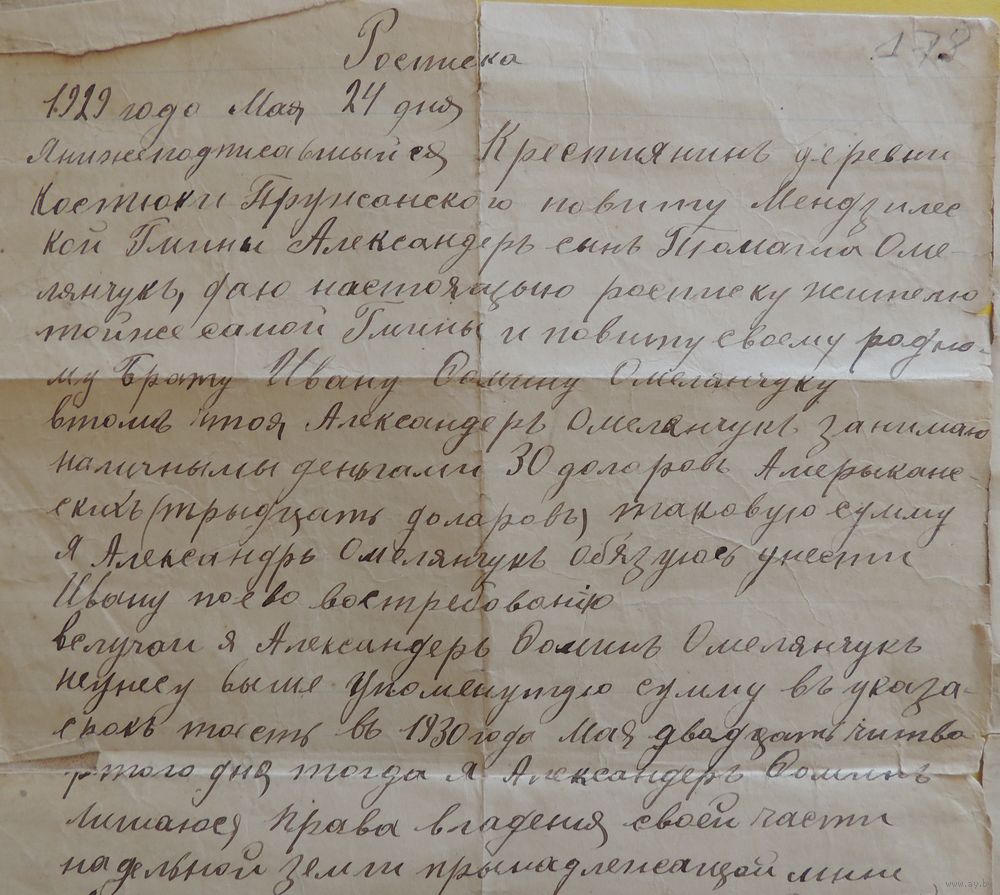 178
Росписка
1929 года Мая 24 дня
Янижеподписавшыйся Крестиянинъ деревни
Костюки Пружанского повиту Мендзилес
кой Гмины Александеръ сынъ Томаша Оме-
лянчукъ, даю настоящую росписку жителю
тойже самой Гмины и повиту своему родно-
му Брату Ивану Фомину Омелянчуку
втомъ штоя Александеръ Омелянчукъ занимаю
наличнымы деньгами 30 доларовъ Амерыкане-
скихъ (трыдцать доларовъ) таковую сумму
я Александръ Омелянчукъ обязуюсь унести
Ивану поево востребованію
вслучаи я Александеръ Фоминъ Омелянчукъ
неунесу выше упоменутую сумму въ указа-
срокъ тоесть въ 1930 года Мая двадцать читво
ртого дня тогда я Александеръ Фоминъ
лишаюся права владения своей части
надельной земли прынадлежащой мини
www.ay.by